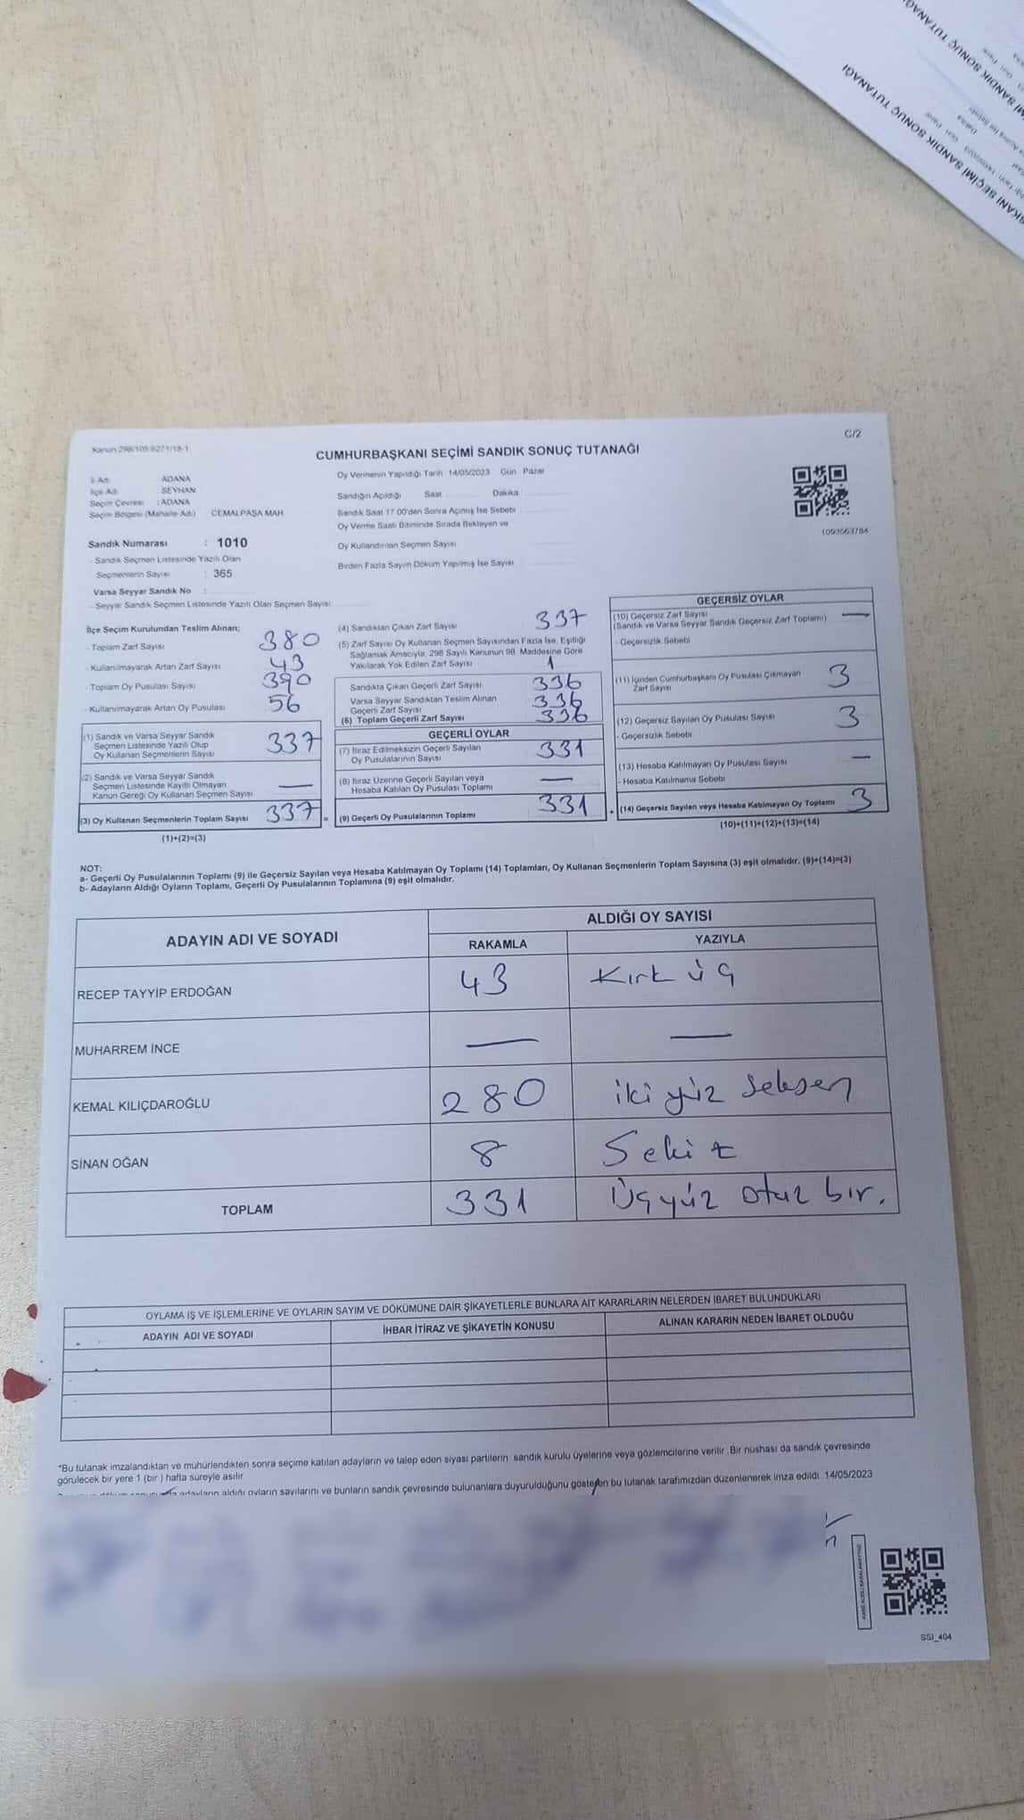 TUTANAĞI
SANDIK SONUÇ TUTANAĞI
C/2
CUMHURBAŞKANI SEÇİMİ SANDIK SONUÇ TUTANAĞI
Oy Vermenin Yapıldığı Tarih 14/05/2023 Gün Pazar
İl Adı ADANA
İlçe Adı : SEYHAN
Seçim Çevresi : ADANA
Seçim Bölgesi (Mahalle Adı) CEMALPAŞA MAH
Sandığın Açıldığı Saat Dakika
Sandık Saat 17.00'den Sonra Açılmış İse Sebebi
Oy Verme Saati Bitiminde Sırada Bekleyen ve
Oy Kullandırılan Seçmen Sayısı
Birden Fazla Sayım Döküm Yapılmış İse Sayısı
1093663784
Sandık Numarası : 1010
- Sandık Seçmen Listesinde Yazılı Olan
Seçmenlerin Sayısı : 365
Varsa Seyyar Sandık No :
- Seyyar Sandık Seçmen Listesinde Yazılı Olan Seçmen Sayısı:
İlçe Seçim Kurulundan Teslim Alınan;
- Toplam Zarf Sayısı 380
- Kullanılmayarak Artan Zarf Sayısı 43
- Toplam Oy Pusulası Sayısı 390
- Kullanılmayarak Artan Oy Pusulası 56
(1) Sandık ve Varsa Seyyar Sandık
Seçmen Listesinde Yazılı Olup
Oy Kullanan Seçmenlerin Sayısı 337
(2) Sandık ve Varsa Seyyar Sandık
Seçmen Listesinde Kayıtlı Olmayan
Kanun Gereği Oy Kullanan Seçmen Sayısı —
(3) Oy Kullanan Seçmenlerin Toplam Sayısı 337 =
(1)+(2)=(3)
(4) Sandıktan Çıkan Zarf Sayısı 337
(5) Zarf Sayısı Oy Kullanan Seçmen Sayısından Fazla İse, Eşitliği
Sağlamak Amacıyla, 298 Sayılı Kanunun 98. Maddesine Göre
Yakılarak Yok Edilen Zarf Sayısı 1
Sandıkta Çıkan Geçerli Zarf Sayısı 336
Varsa Seyyar Sandıktan Teslim Alınan
Geçerli Zarf Sayısı 336
(6) Toplam Geçerli Zarf Sayısı 336
GEÇERLİ OYLAR
(7) İtiraz Edilmeksizin Geçerli Sayılan
Oy Pusulalarının Sayısı 331
(8) İtiraz Üzerine Geçerli Sayılan veya
Hesaba Katılan Oy Pusulası Toplamı —
(9) Geçerli Oy Pusulalarının Toplamı 331
GEÇERSİZ OYLAR
(10) Geçersiz Zarf Sayısı —
(Sandık ve Varsa Seyyar Sandık Geçersiz Zarf Toplamı)
- Geçersizlik Sebebi
(11) İçinden Cumhurbaşkanı Oy Pusulası Çıkmayan
Zarf Sayısı 3
(12) Geçersiz Sayılan Oy Pusulası Sayısı 3
- Geçersizlik Sebebi
(13) Hesaba Katılmayan Oy Pusulası Sayısı —
- Hesaba Katılmama Sebebi
+ (14) Geçersiz Sayılan veya Hesaba Katılmayan Oy Toplamı 3
(10)+(11)+(12)+(13)=(14)
NOT:
a- Geçerli Oy Pusulalarının Toplamı (9) ile Geçersiz Sayılan veya Hesaba Katılmayan Oy Toplamı (14) Toplamları, Oy Kullanan Seçmenlerin Toplam Sayısına (3) eşit olmalıdır. (9)+(14)=(3)
b- Adayların Aldığı Oyların Toplamı, Geçerli Oy Pusulalarının Toplamına (9) eşit olmalıdır.
ADAYIN ADI VE SOYADI ALDIĞI OY SAYISI
RAKAMLA YAZIYLA
RECEP TAYYİP ERDOĞAN 43 Kırk üç
MUHARREM İNCE — —
KEMAL KILIÇDAROĞLU 280 iki yüz seksen
SİNAN OĞAN 8 Sekiz
TOPLAM 331 Üçyüz otuz bir.
OYLAMA İŞ VE İŞLEMLERİNE VE OYLARIN SAYIM VE DÖKÜMÜNE DAİR ŞİKAYETLERLE BUNLARA AİT KARARLARIN NELERDEN İBARET BULUNDUKLARI
ADAYIN ADI VE SOYADI İHBAR İTİRAZ VE ŞİKAYETİN KONUSU ALINAN KARARIN NEDEN İBARET OLDUĞU
*Bu tutanak imzalandıktan ve mühürlendikten sonra seçime katılan adayların ve talep eden siyasi partilerin sandık kurulu üyelerine veya gözlemcilerine verilir. Bir nüshası da sandık çevresinde
görülecek bir yere 1 (bir) hafta süreyle asılır
adayların aldığı oyların sayılarını ve bunların sandık çevresinde bulunanlara duyurulduğunu gösteren bu tutanak tarafımızdan düzenlenerek imza edildi. 14/05/2023
SSI_404